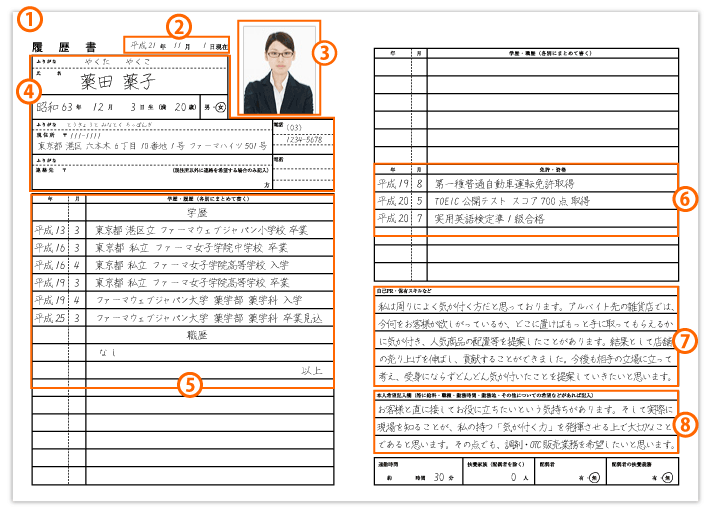 ①
履歴書
②
平成 21 年 11 月 1 日現在
③
④
ふりがな やくた やくこ
氏 名 薬田 薬子
昭和 63 年 12 月 3 日生 (満 20 歳) 男・女
ふりがな とうきょうと みなとく ろっぽんぎ
現住所 〒111-1111
東京都 港区 六本木 6丁目 10番地 1号 ファーマハイツ 501号
電話 (03)
1234-5678
ふりがな
電話
連絡先 〒 (現住所以外に連絡を希望する場合のみ記入)
方
年 月 学歴・職歴(各別にまとめて書く)
学歴
平成13 3 東京都 港区立 ファーマウェブジャパン小学校 卒業
平成16 3 東京都 私立 ファーマ女子学院中学校 卒業
平成16 4 東京都 私立 ファーマ女子学院高等学校 入学
平成19 3 東京都 私立 ファーマ女子学院高等学校 卒業
平成19 4 ファーマウェブジャパン大学 薬学部 薬学科 入学
平成25 3 ファーマウェブジャパン大学 薬学部 薬学科 卒業見込
職歴
なし
以上
⑤
年 月 学歴・職歴(各別にまとめて書く)
年 月 免許・資格
平成19 8 第一種普通自動車運転免許取得
平成20 5 TOEIC 公開テスト スコア 700点 取得
平成20 7 実用英語検定準1級合格
⑥
自己PR・保有スキルなど
私は周りによく気が付く方だと思っております。アルバイト先の雑貨店では、
今何をお客様が欲しがっているか、どこに置けばもっと手に取ってもらえるか
に気が付き、人気商品の配置等を提案したことがあります。結果として店舗
の売り上げを伸ばし、貢献することができました。今後も相手の立場に立って
考え、受身にならずどんどん気が付いたことを提案していきたいと思います。
⑦
本人希望記入欄(特に給料・職種・勤務時間・勤務地・その他についての希望などがあれば記入)
お客様と直に接してお役に立ちたいという気持ちがあります。そして実際に
現場を知ることが、私の持つ「気が付く力」を発揮させる上で大切なこと
であると思います。その点でも、調剤・OTC販売業務を希望したいと思います。
⑧
通勤時間 扶養家族(配偶者を除く) 配偶者 配偶者の扶養義務
約 時間 30 分 0 人 有・無 有・無